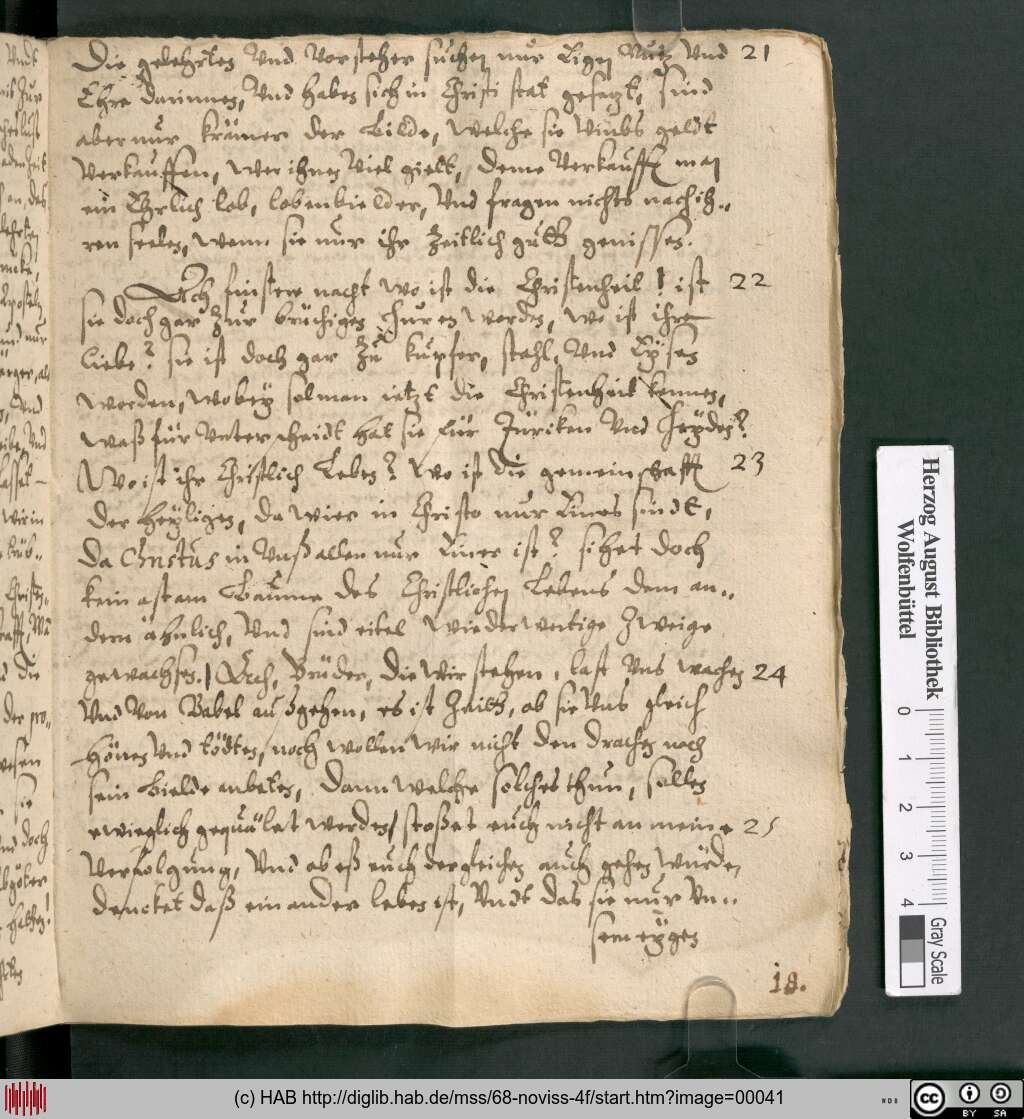 Die gelehrten Vnd Vorsteher suchen nur Eigen Nutz Vnd 21
Ehre darinnen, Vnd haben sich in Christi stat gesetzt, sind
aber nur krämer der bilde, welche sie Vmbs geldt
Verkauffen, wer ihnen Viel gielt, deme Verkaufft man
ein Ehrlich lob, lobenbielder, Vnd fragen nichts nach ih„
ren seelen, wenn sie nur ihr Zeitlich gutt genissen.
Ach finstere nacht wo ist die Christenheit! ist 22
sie doch gar Zur brüchigen Huren worden, wo ist ihre
liebe? sie ist doch gar Zu kupfer, stahl, Vnd Eysen
worden, wobey sol man ietzt die Christenheit kennen,
waß für Vnterscheidt hat sie für Türcken Vnd Heyden?
Wo ist ihr Christlich Leben? Wo ist die gemeinschafft 23
der heyligen, da wier in Christo nur Eines sindt,
da Christus in Vnß allen nur Einer ist? sihet doch
kein ast am Baume des Christlichen Lebens dem an„
dern ähnlich, Vnd sind eitel wiederwertige Zweige
gewachsen. Ach, Brüder, die wir stehen, last Vns wachen 24
Vnd Von Babel außgehen, es ist Zeitt, ob sie Vns gleich
hönen Vnd tödten, noch wollen wir nicht den drachen noch
sein bielde anbeten, dann welche solches thun, sollen
ewieglich gequälet werden, stoßet euch nicht an meine 25
Verfolgung, Vnd ob eß euch dergleichen auch gehen würde,
dencket daß ein ander leben ist, Vndt das sie nur Vn„
sern eygen
18.
Herzog August Bibliothek
Wolfenbüttel
0 1 2 3 4
Gray Scale
(c) HAB http://diglib.hab.de/mss/68-noviss-4f/start.htm?image=00041
cc BY SA